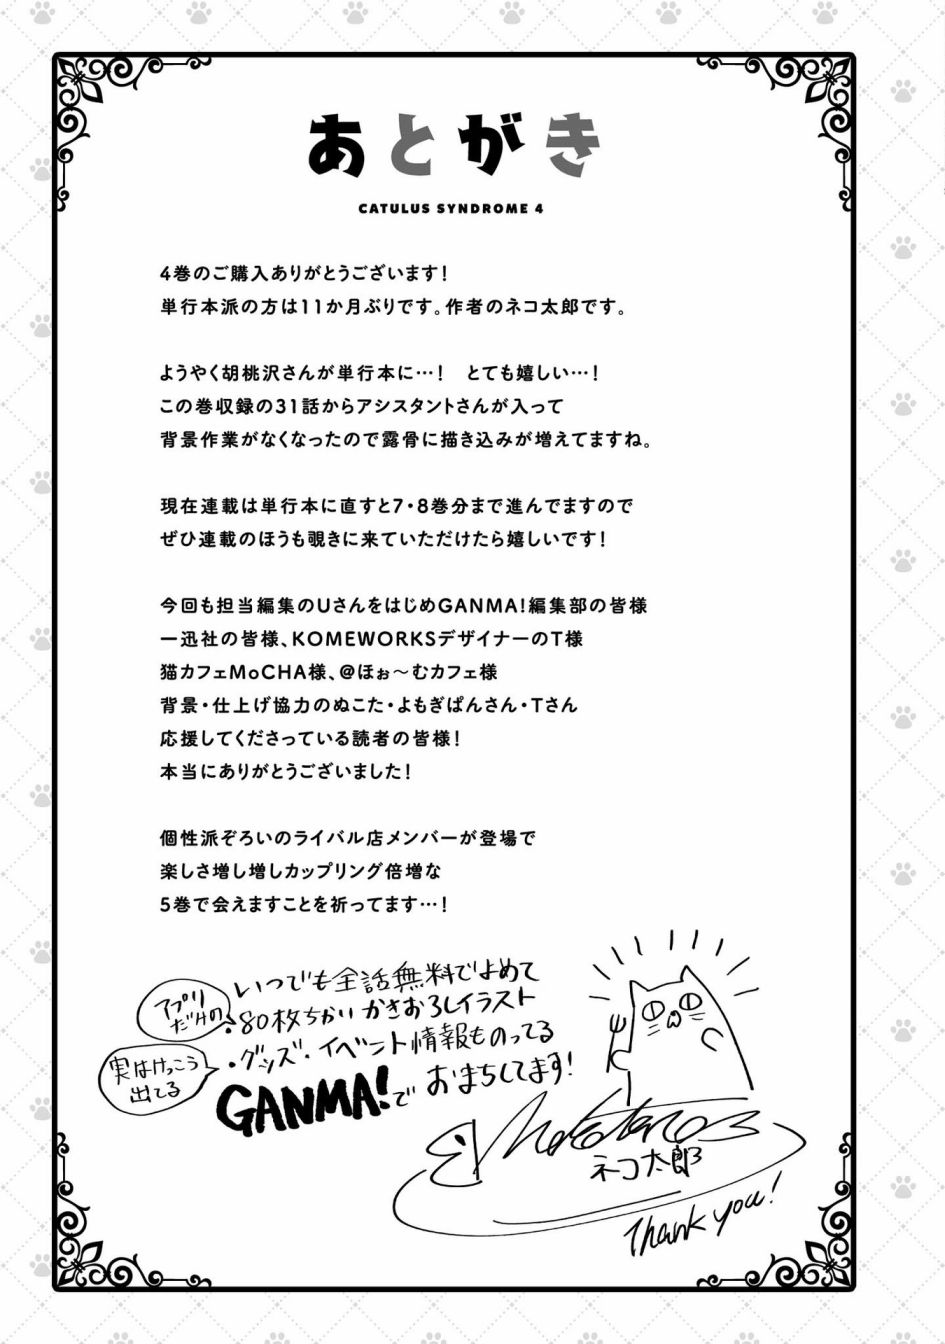 あとがき
CATULUS SYNDROME 4
4巻のご購入ありがとうございます!
単行本派の方は11か月ぶりです。作者のネコ太郎です。
ようやく胡桃沢さんが単行本に…!　とても嬉しい…!
この巻収録の31話からアシスタントさんが入って
背景作業がなくなったので露骨に描き込みが増えてますね。
現在連載は単行本に直すと7・8巻分まで進んでますので
ぜひ連載のほうも覗きに来ていただけたら嬉しいです!
今回も担当編集のUさんをはじめGANMA!編集部の皆様
一迅社の皆様、KOMEWORKSデザイナーのT様
猫カフェMoCHA様、@ほぉ～むカフェ様
背景・仕上げ協力のぬこた・よもぎぱんさん・Tさん
応援してくださっている読者の皆様!
本当にありがとうございました!
個性派ぞろいのライバル店メンバーが登場で
楽しさ増し増しカップリング倍増な
5巻で会えますことを祈ってます…!
・いつでも全話無料でよめて
アプリ
だけの
・80枚ちかいかきおろしイラスト
実はけっこう
出てる
・グッズ・イベント情報ものってる
GANMA!でおまちしてます!
Nekotaro
ネコ太郎
Thank you!